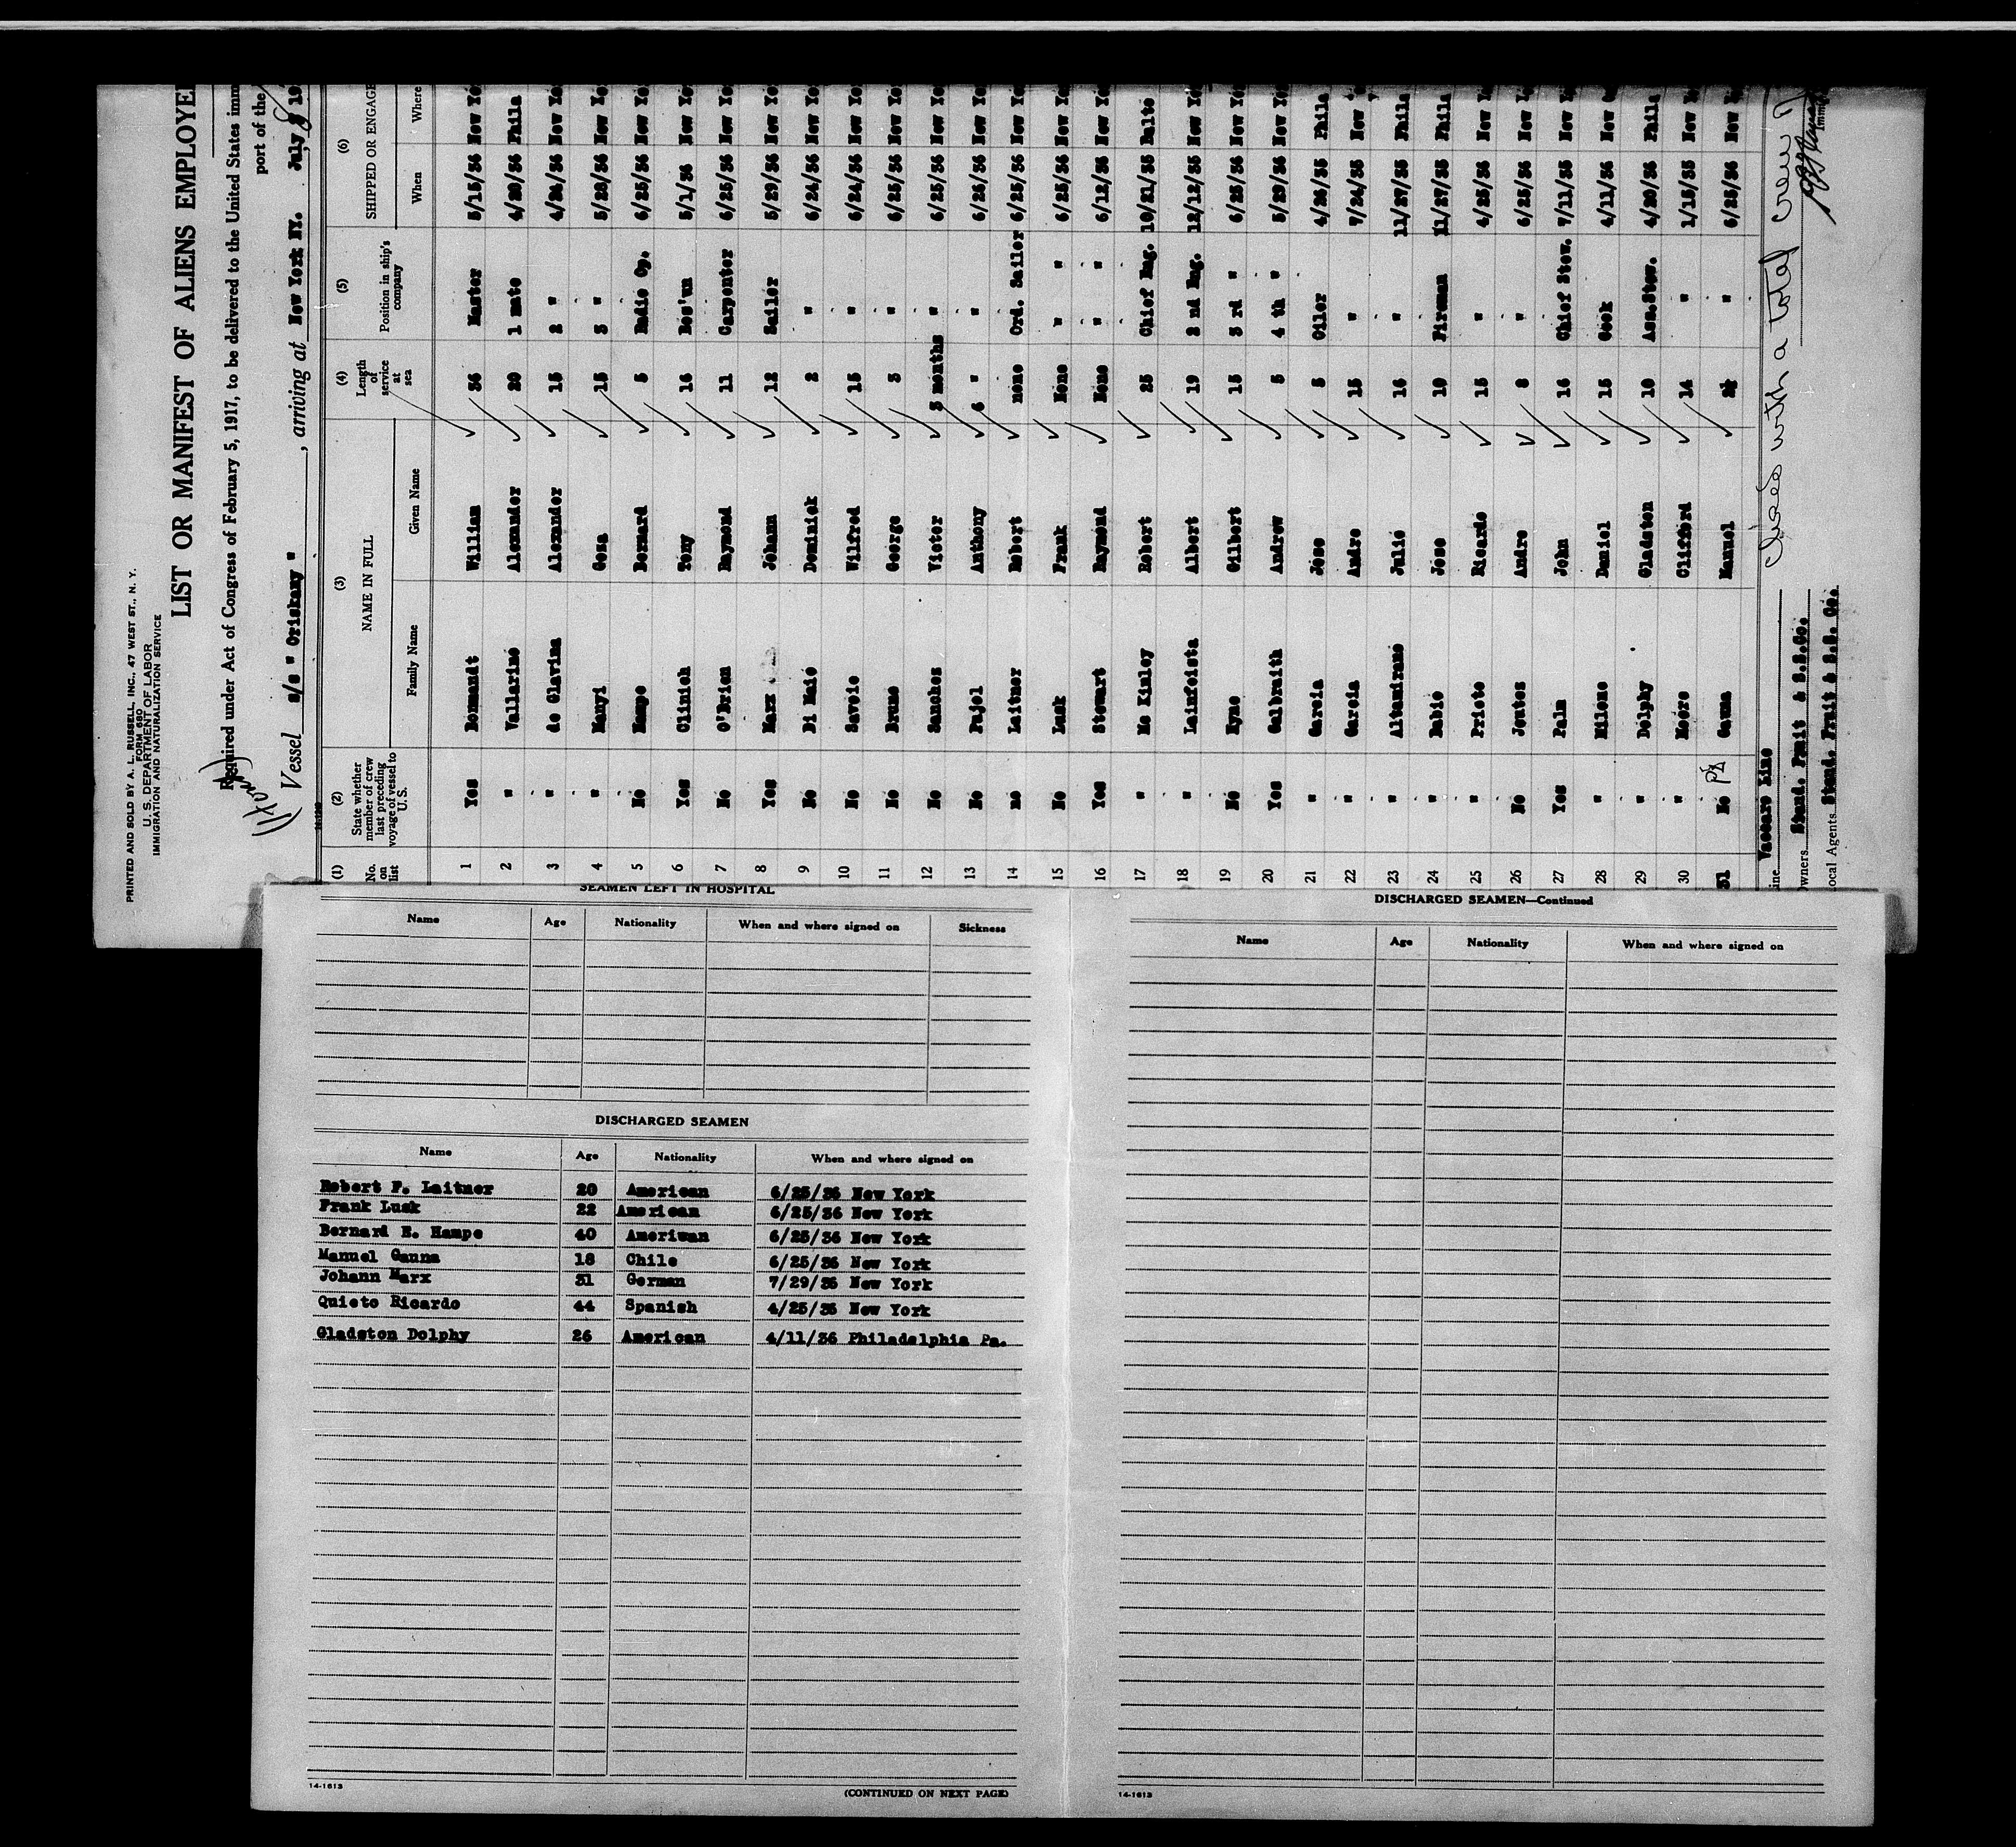 PRINTED AND SOLD BY A. L. RUSSELL, INC., 47 WEST ST., N. Y.
FORM 680
U. S. DEPARTMENT OF LABOR
IMMIGRATION AND NATURALIZATION SERVICE
LIST OR MANIFEST OF ALIENS EMPLOYE
Required under Act of Congress of February 5, 1917, to be delivered to the United States imm
port of the
Vessel s/s " Oriskany ", arriving at New York NY. July 8 19
(1) No. on list (2) State whether member of crew last preceding voyage of vessel to U.S. (3) NAME IN FULL Family Name Given Name (4) Length of service at sea (5) Position in ship's company (6) SHIPPED OR ENGAGE When Where
1 Yes Bonmandt William 36 Master 5/15/36 New Yo
2 " Vallarino Alexander 20 1 mate 4/20/36 Phila
3 " de Glavina Alexander 15 2 " 4/24/36 New Yo
4 " Manyi Geza 15 3 " 5/28/36 New Yo
5 No Hampe Bernard 5 Radio Op. 6/25/36 New Yo
6 Yes Clinich Tony 16 Bos'un 5/1/36 New Yo
7 No O'Brien Raymond 11 Carpenter 6/25/36 New Yo
8 Yes Marx Johann 12 Sailor 5/29/36 New Yo
9 No Di Maio Dominick 2 " 6/24/36 New Yo
10 No Savoie Wilfred 15 " 6/24/36 New Yo
11 No Brune George 3 " 6/25/36 New Yo
12 No Sanchos Victor 3 months " 6/25/36 New Yo
13 No Pajol Anthony 6 " " 6/25/36 New Yo
14 no Laitner Robert none Ord. Sailor 6/25/36 New Yo
15 No Lusk Frank None " " 6/25/36 New Yo
16 Yes Stewart Raymond None " " 6/12/36 New Yo
17 " Mc Kinley Robert 25 Chief Eng. 10/21/35 Balto
18 " Leinfeista Albert 19 2 nd Eng. 12/12/35 New Yo
19 No Hyne Gilbert 15 3 rd " 6/25/36 New Yo
20 Yes Galbraith Andrew 5 4 th " 5/29/36 New Yo
21 " Garcia Jose 5 Oiler 4/26/35 Phila
22 " Garcia Andre 15 " 7/24/35 New
23 " Altamirano Julio 16 " 11/27/35 Phila
24 " Babio Jose 10 Fireman 11/27/35 Phila
25 " Prieto Ricardo 15 " 4/25/36 New
26 No Jontes Andre 8 " 6/25/36 New
27 Yes Palm John 16 Chief Stew. 7/11/35 New
28 " Milone Daniel 15 Cook 4/11/36 New
29 " Dolphy Gladston 10 Ass.Stew. 4/20/36 Phila
30 " Moore Clifford 14 " 1/15/35 New
31 No Gauna Manuel 2½ " 6/25/36 New
Line Vaccaro Line
Owners Stand. Fruit & S.S.Co.
Local Agents Stand. Fruit & S.S. Co.
with a total crew
SEAMEN LEFT IN HOSPITAL
Name Age Nationality When and where signed on Sickness
DISCHARGED SEAMEN
Name Age Nationality When and where signed on
Robert F. Laitner 20 American 6/25/36 New York
Frank Lusk 22 American 6/25/36 New York
Bernard E. Hampe 40 American 6/25/36 New York
Manuel Ganna 18 Chile 6/25/36 New York
Johann Marx 31 German 7/29/36 New York
Quieto Ricardo 44 Spanish 4/25/36 New York
Gladston Dolphy 26 American 4/11/36 Philadelphia Pa.
14-1613
(CONTINUED ON NEXT PAGE)
DISCHARGED SEAMEN—Continued
Name Age Nationality When and where signed on
14-1613